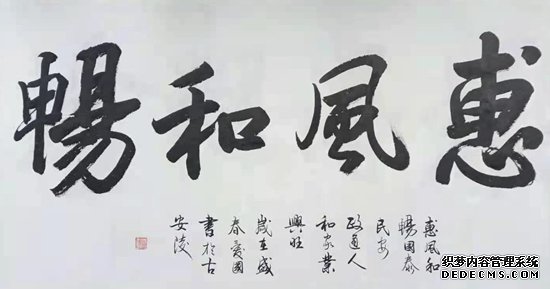 惠風和暢
惠風和
暢國泰
民安
政通人
和家業
興旺
歲在盛
春愛國
書於古
安陵
织梦内容管理系统
DEDECMS.COM